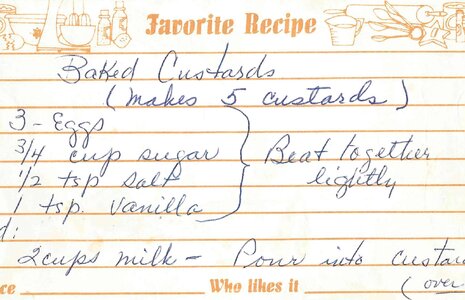 Favorite Recipe
Baked Custards
(makes 5 custards)
3 - Eggs
3/4 cup sugar
1/2 tsp salt
1 tsp. vanilla
Beat together
lightly
d:
2 cups milk - Pour into custar
ce Who likes it
(over